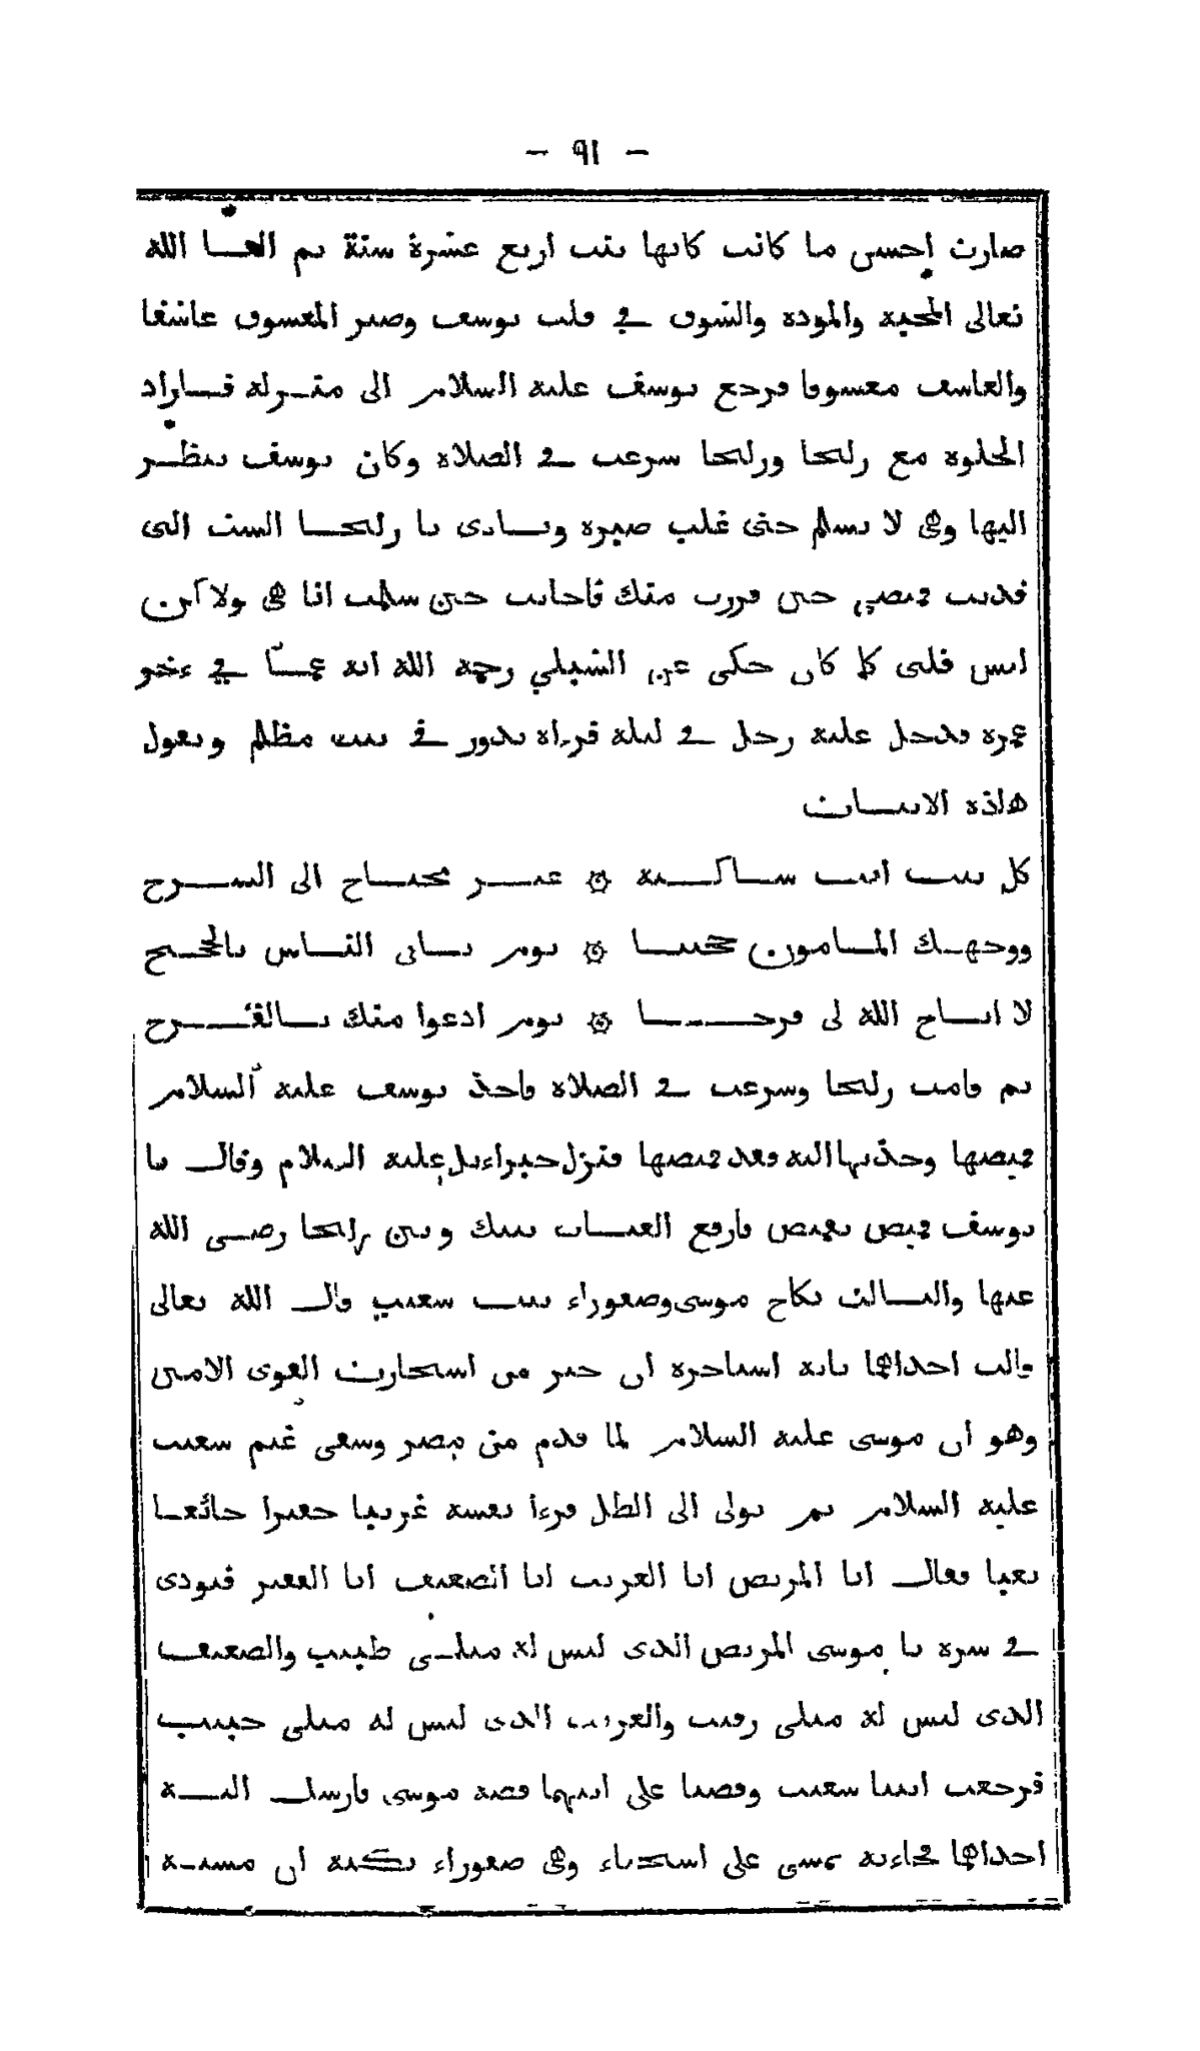 — ٩١ —
صارت احسن ما كانت كانها بنت اربع عشرة سنة ثم القا الله
تعالى المحبة والمودة والشوق في قلب يوسف وصير المعشوق عاشقا
والعاشق معشوقا فرجع يوسف عليه السلام الى منزله فاراد
الخلوة مع زليخا وزليخا شرعت في الصلاة وكان يوسف ينظر
اليها وهى لا تسلم حتى غلب صبره ونادى يا زليخا الست التى
قديت قميصي حين فررت منك فاجابت حين سلمت انا هى ولاكن
ليس قلبى كما كان حكى عن الشبلي رحمه الله انه عمّا في ءاخر
عمره فدخل عليه رجل في ليلة فرءاه يدور في بيت مظلم ويقول
هاذه الابيات
كل بيت انت ساكنه ۞ غير محتاج الى السرج
ووجهك المامون حجتنا ۞ يوم ياتى الناس بالحجج
لا اتاح الله لى فرجا ۞ يوم ادعوا منك بالفرج
ثم قامت زليخا وشرعت في الصلاة فاخذ يوسف عليه السلام
قميصها وجذبها اليه فقد قميصها فنزل جبراءيل عليه السلام وقال يا
يوسف قميص بقميص فارفع العتاب بينك وبين زليخا رضى الله
عنها والثالث نكاح موسى وصفوراء بنت شعيب قال الله تعالى
قالت احداهما يابة استاجره ان خير من استجارت القوى الامين
وهو ان موسى عليه السلام لما قدم من مصر وسقى غنم شعيب
عليه السلام ثم تولى الى الظل فرءا نفسه غريبا حقيرا جائعا
تعبا فقال انا المريض انا الغريب انا الضعيف انا الفقير فنودى
في سره يا موسى المريض الذى ليس له مثلى طبيب والضعيف
الذى ليس له مثلى رقيب والغريب الذى ليس له مثلى حبيب
فرجعت ابنتا شعيب وقصتا على ابيهما قصة موسى فارسل اليه
احداهما فجاءته تمشى على استحياء وهى صفوراء بكنيه ان مشيه